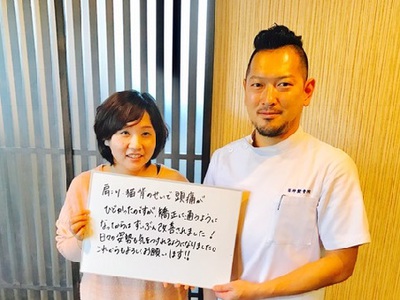 肩こり・猫背のせいで頭痛が
ひどかったのですが、矯正に通うように
なってからはずいぶん改善されました！
日々の姿勢も気をつけれるようになりました。
これからもよろしくお願いします!!